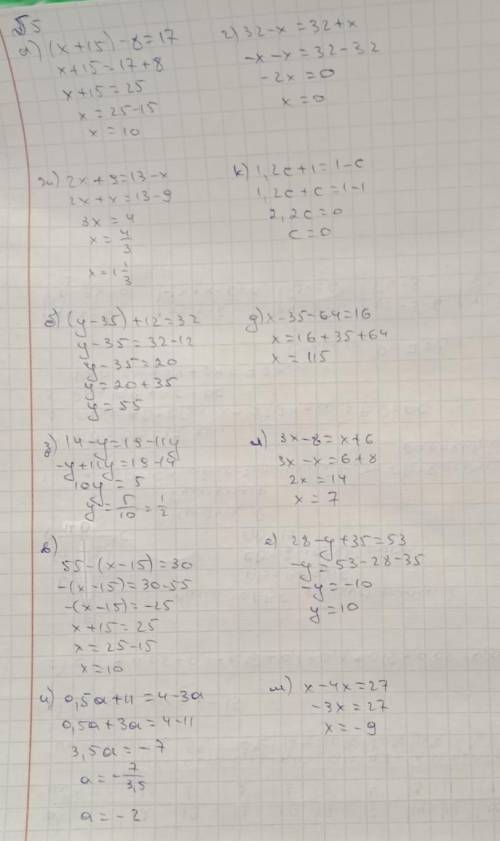 №5
а) (x+15)-8=17
x+15=17+8
x+15=25
x=25-15
x=10
г) 32-x=32+x
-x-x=32-32
-2x=0
x=0
ж) 2x+9=13-x
2x+x=13-9
3x=4
x=4/3
x=1 1/3
к) 1,2c+1=1-c
1,2c+c=1-1
2,2c=0
c=0
б) (y-35)+12=32
y-35=32-12
y-35=20
y=20+35
y=55
д) x-35-64=16
x=16+35+64
x=115
з) 14-y=19-11y
-y+11y=19-14
10y=5
y=5/10=1/2
л) 3x-8=x+6
3x-x=6+8
2x=14
x=7
в)
55-(x-15)=30
-(x-15)=30-55
-(x-15)=-25
x+15=25
x=25-15
x=10
е) 28-y+35=53
-y=53-28-35
-y=-10
y=10
и) 0,5a+11=4-3a
0,5a+3a=4-11
3,5a=-7
a=-7/3,5
a=-2
м) x-4x=27
-3x=27
x=-9